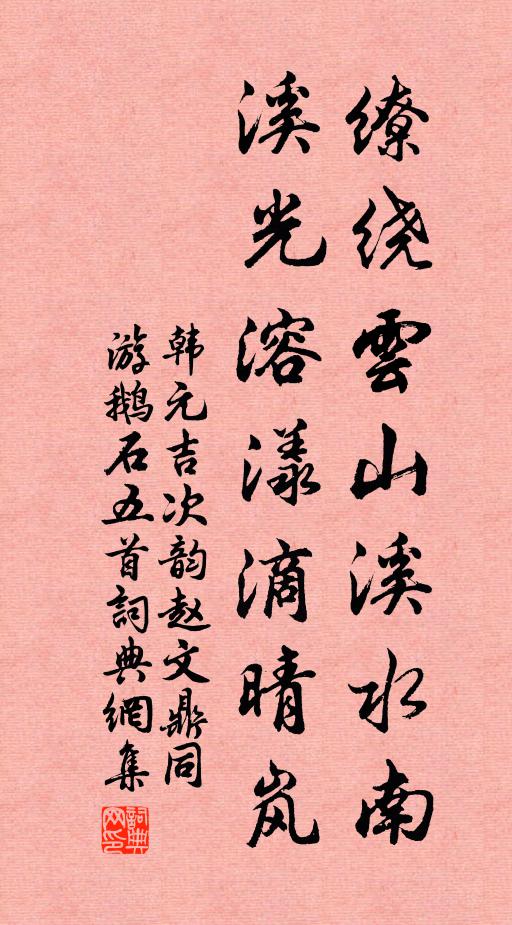 缭绕雲山溪水南
溪光溶漾滴晴岚
韩元吉次韵赵文鼎同
游鹅石五首詞典網集
詞典
网印